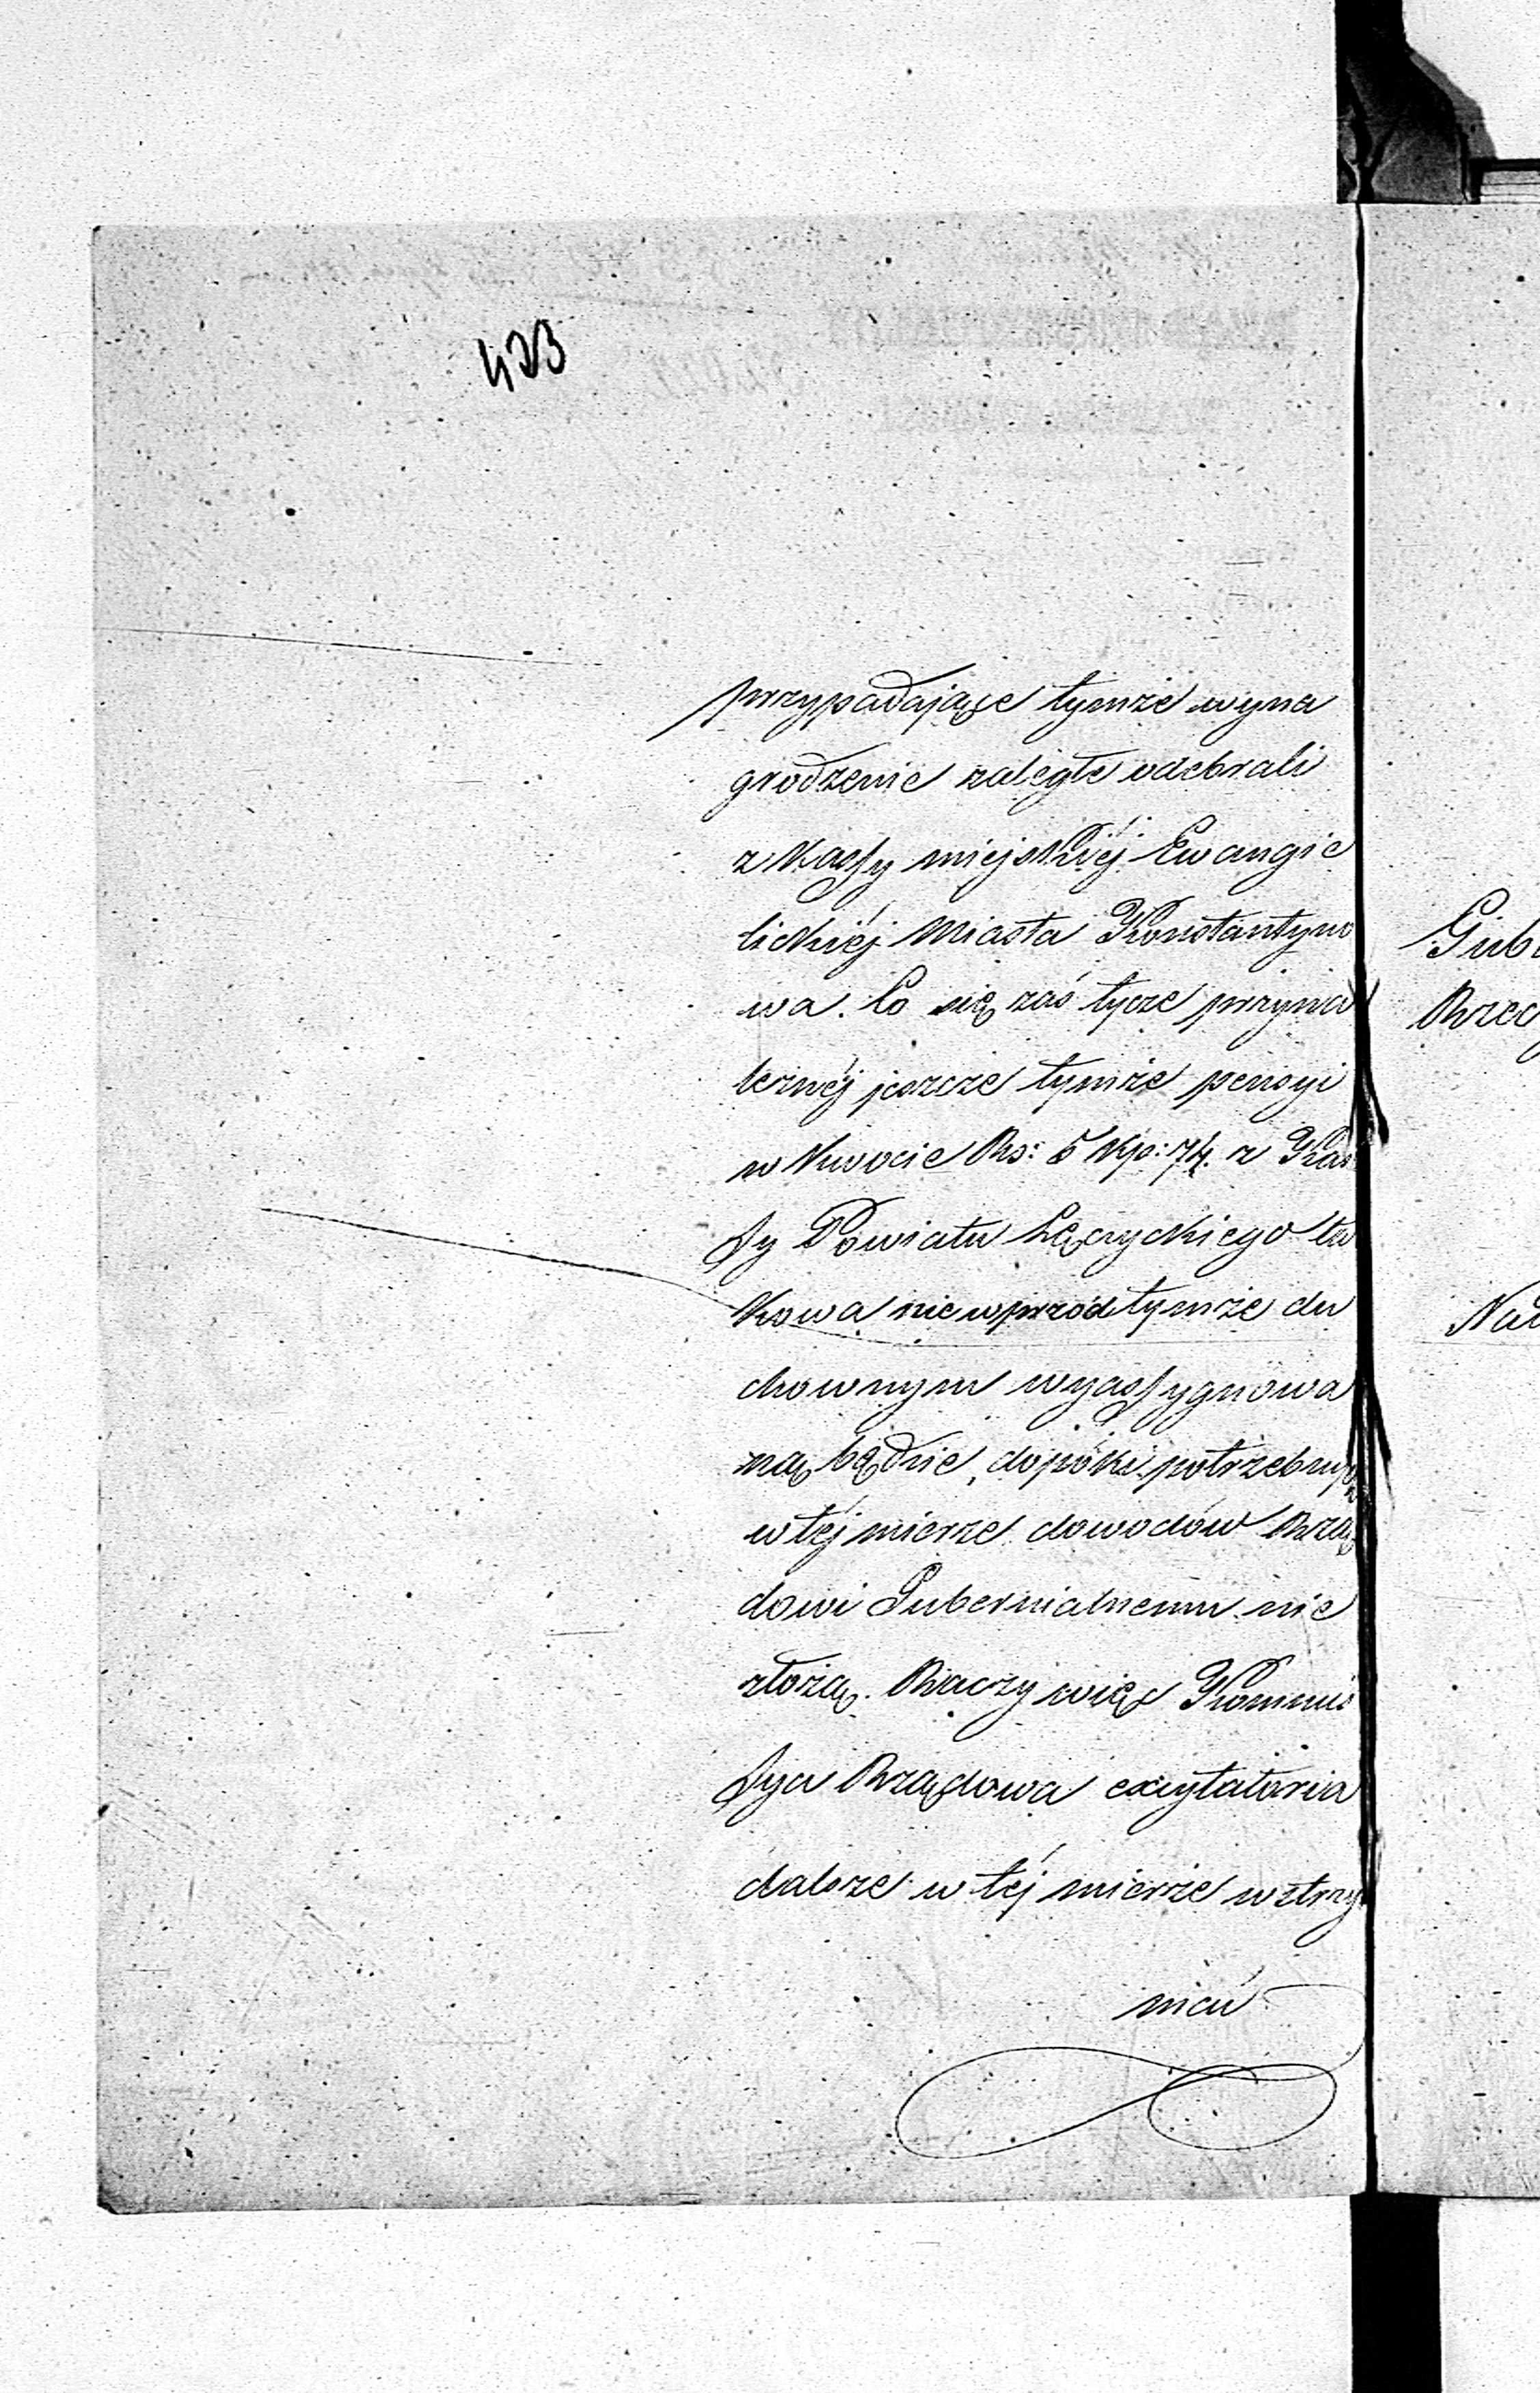 423
przypadające tymże wyna
grodzenie zaległe odebrali
z Kassy miejskiéj Ewangie
lickiéj Miasta Konstantyno
wa. Co się zaś tycze przyna
leznéj jeszcze tymże pensyi
w kwocie Rs: 5 kp: 74. z Kas
sy Powiatu Łęczyckiego ta
kowa nie wprzód tymże du
chownym wyassygnowa
ną będzie, dopóki potrzebnych
w téj mierze dowodów Rzą
dowi Gubernialnemu nie
złożą. Raczy więc Kommis
sya Rządowa excytatoria
dalsze w téj mierze wstrzy
mać
Gub
Rzec
Nad